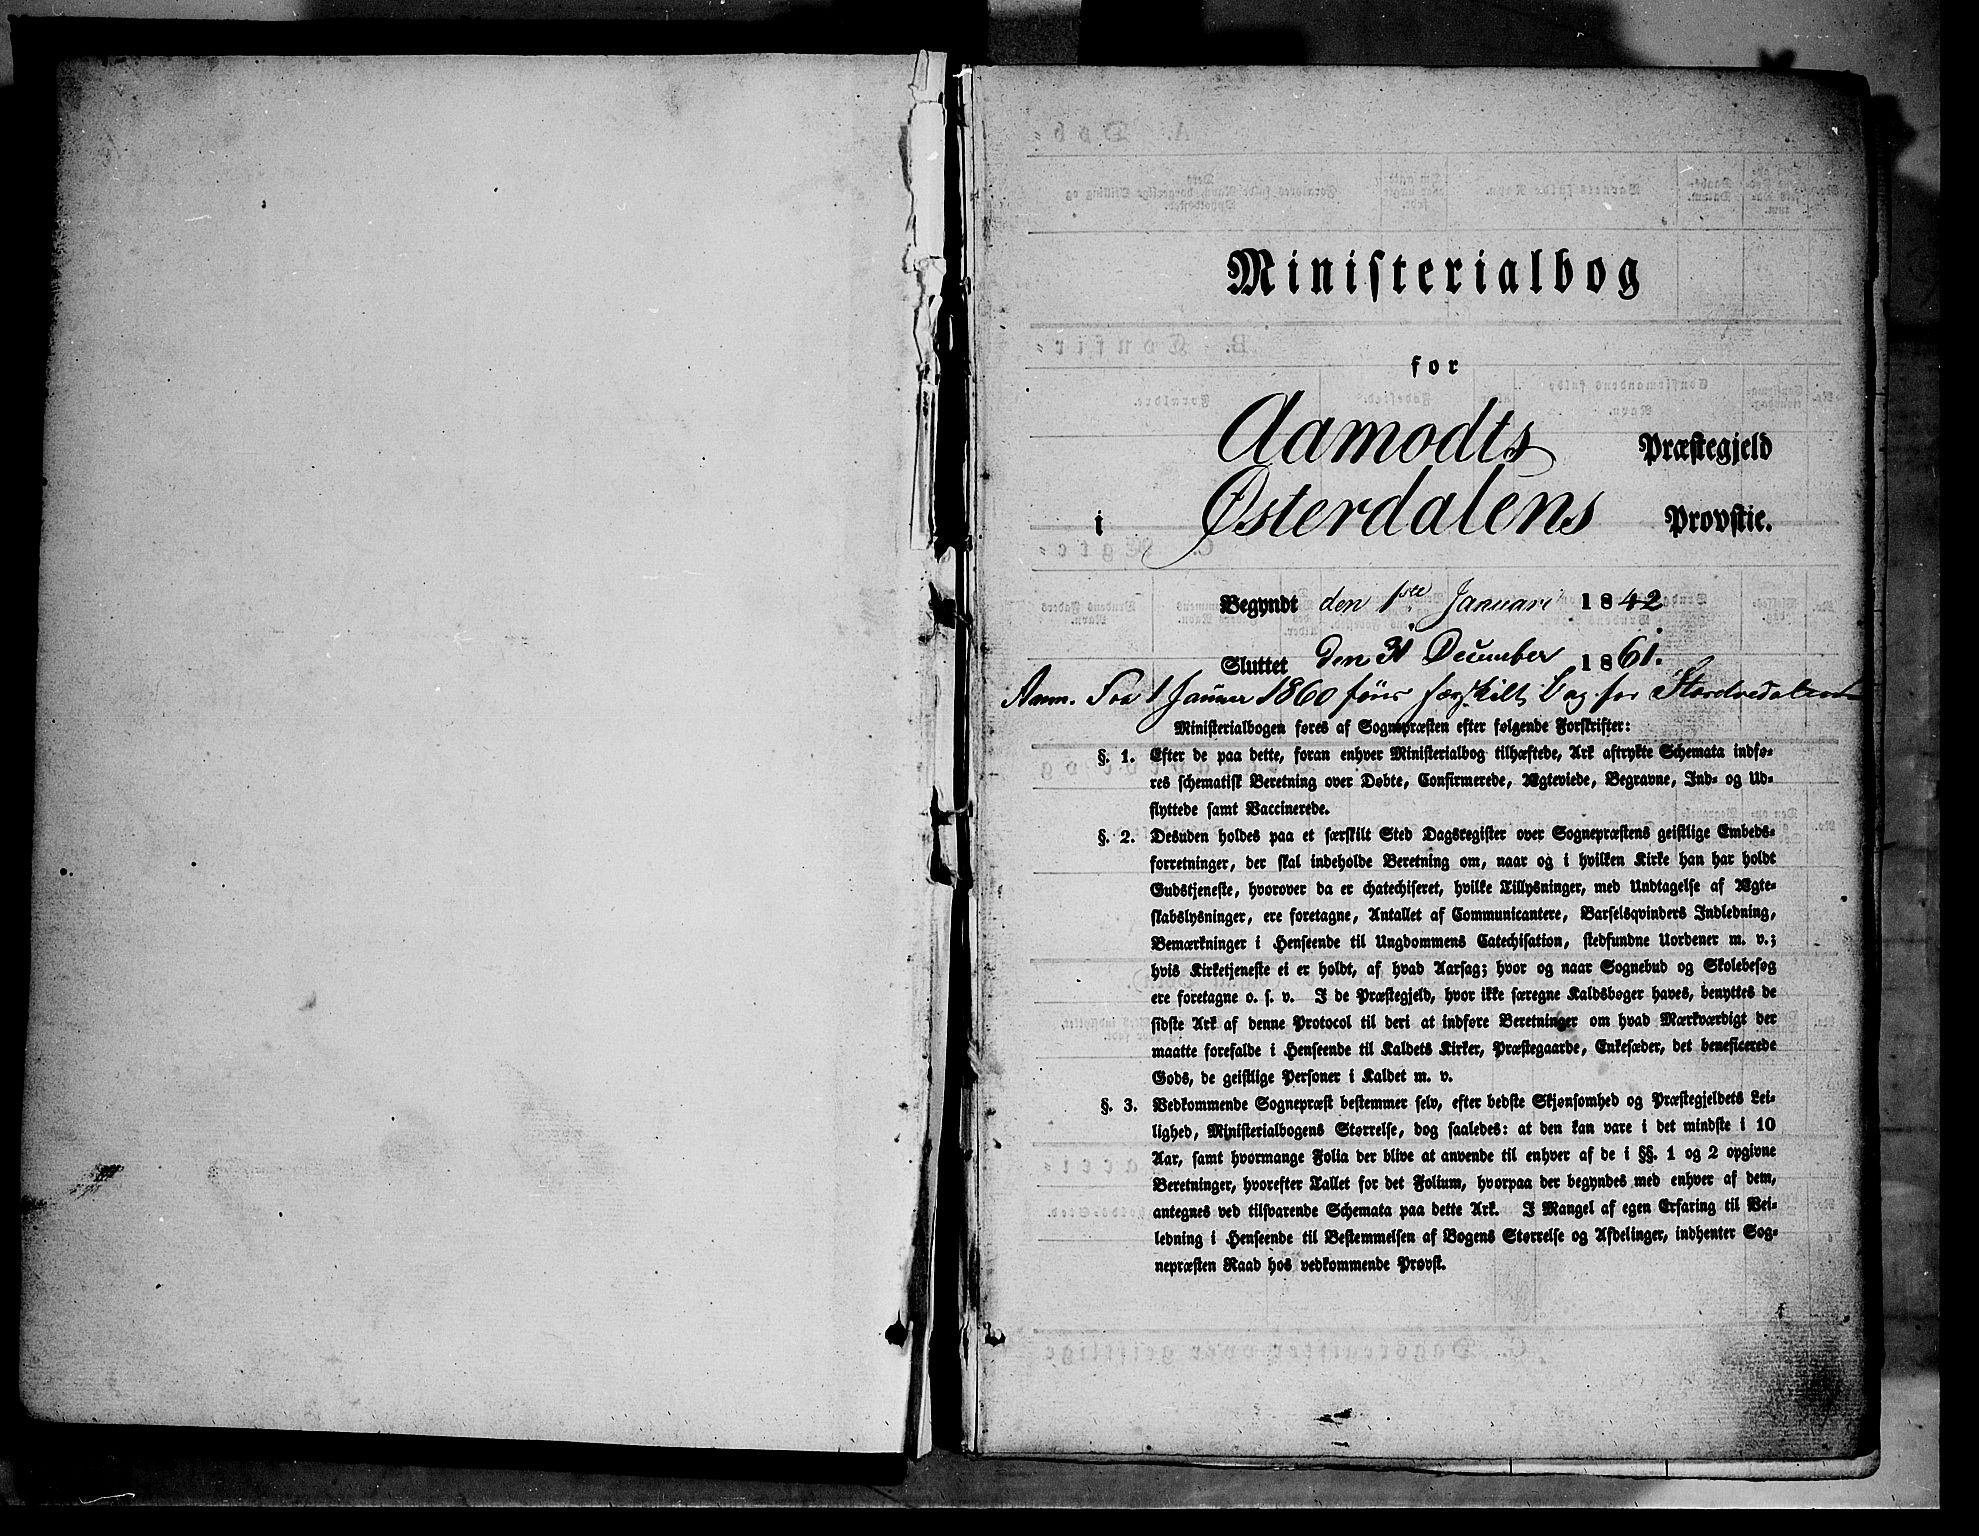 Ministerialbog
for
Aamodts Præstegjeld
i Østerdalens Provstie.
Begyndt den 1ste Januari 1842
Sluttet den 31 December 1861.
Anm. Fra 1 Januar 1860 føres særskilt Bog for
Ministerialbogen føres af Sognepræsten efter følgende Forskrifter:
§. 1. Efter de paa dette, foran enhver Ministerialbog tilhæftede, Ark aftrykte Schemata indfø-
res schematisk Beretning over Døbte, Confirmerede, Ægteviede, Begravne, Ind- og Ud-
flyttede samt Vaccinerede.
§. 2. Desuden holdes paa et særskilt Sted Dagsregister over Sognepræstens geistlige Embeds-
forretninger, der skal indeholde Beretning om, naar og i hvilken Kirke han har holdt
Gudstjeneste, hvorover da er chatechiseret, hvilke Tillysninger, med Undtagelse af Ægte-
skabslysninger, ere foretagne, Antallet af Communicantere, Barselqvinders Indledning,
Bemærkninger i Henseende til Ungdommens Catechisation, stedfundne Uordener m. v.;
hvis Kirketjeneste ei er holdt, af hvad Aarsag; hvor og naar Sognebud og Skolebesøg
ere foretagne o. s. v. I de Præstegjeld, hvor ikke særegne Kaldsbøger haves, benyttes de
sidste Ark af denne Protocol til deri at indføre Beretninger om hvad Mærkværdigt der
maatte forefalde i Henseende til Kaldets Kirker, Præstegaarde, Enkesæder, det beneficerede
Gods, de geistlige Personer i Kaldet m. v.
§. 3. Vedkommende Sognepræst bestemmer selv, efter bedste Skjønsomhed og Præstegjeldets Lei-
lighed, Ministerialbogens Størrelse, dog saaledes: at den kan vare i det mindste i 10
Aar, samt hvormange Folia der blive at anvende til enhver af de i §§. 1 og 2 opgivne
Beretninger, hvorefter Tallet for det Folium, hvorpaa der begyndes med enhver af dem,
antegnes ved tilsvarende Schemata paa dette Ark. I Mangel af egen Erfaring til Vei-
ledning i Henseende til Bestemmelsen af Bogens Størrelse og Afdelinger, indhenter Sog-
nepræsten Raad hos vedkommende Provst.